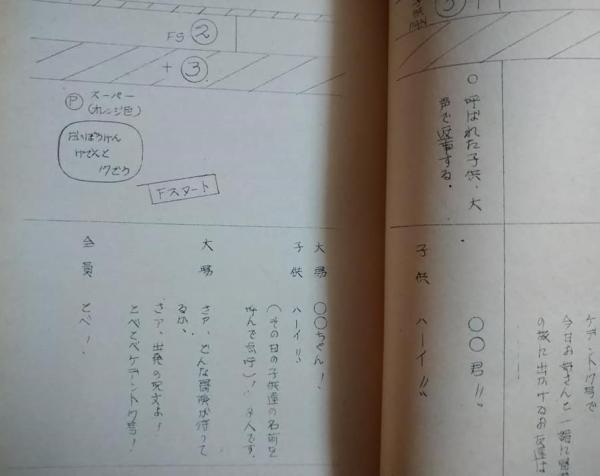 ③
○ 呼ばれた子供、大
声で返事する。
ケデントワ号で
今日お母さんと一緒に
の旅に出かけるお友達は
○○君!!
子供 ハーイ!!
FS ②
+ ③
Ⓟ スーパー
(オレンジ色)
だいぼうけん
けさんと
ワごう
Fスタート
大場 ○○ちゃん!
子供 ハーイ!!
(その日の子供達の名前を
呼んで点呼)! 9人です。
大場 さァ、どんな冒険が待って
るか。
さァ、出発の呪文よ!
とべとべケデントワ号!
全員 とべ!